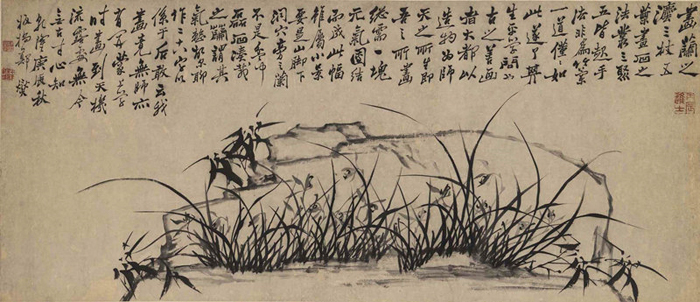 畫蘭之
法三枝五
葉畫石之
法叢三聚
五皆起手
法非為竹蘭
一道僅僅如
此遂了其
生平學問也
古之善畫
者大都以
造物為師
天之所生即
吾之所畫
總需一塊
元氣團結
而成此幅
雖屬小景
要是山脚下
洞穴旁之蘭
不是盆中
磊石湊栽
之蘭謂其
氣整故爾聊
作二十八字以
係于后敢云我
畫竟無師亦
有開蒙上學
時畫到天機
流露處無今
無古寸心知
乾隆庚辰秋
板橋鄭燮